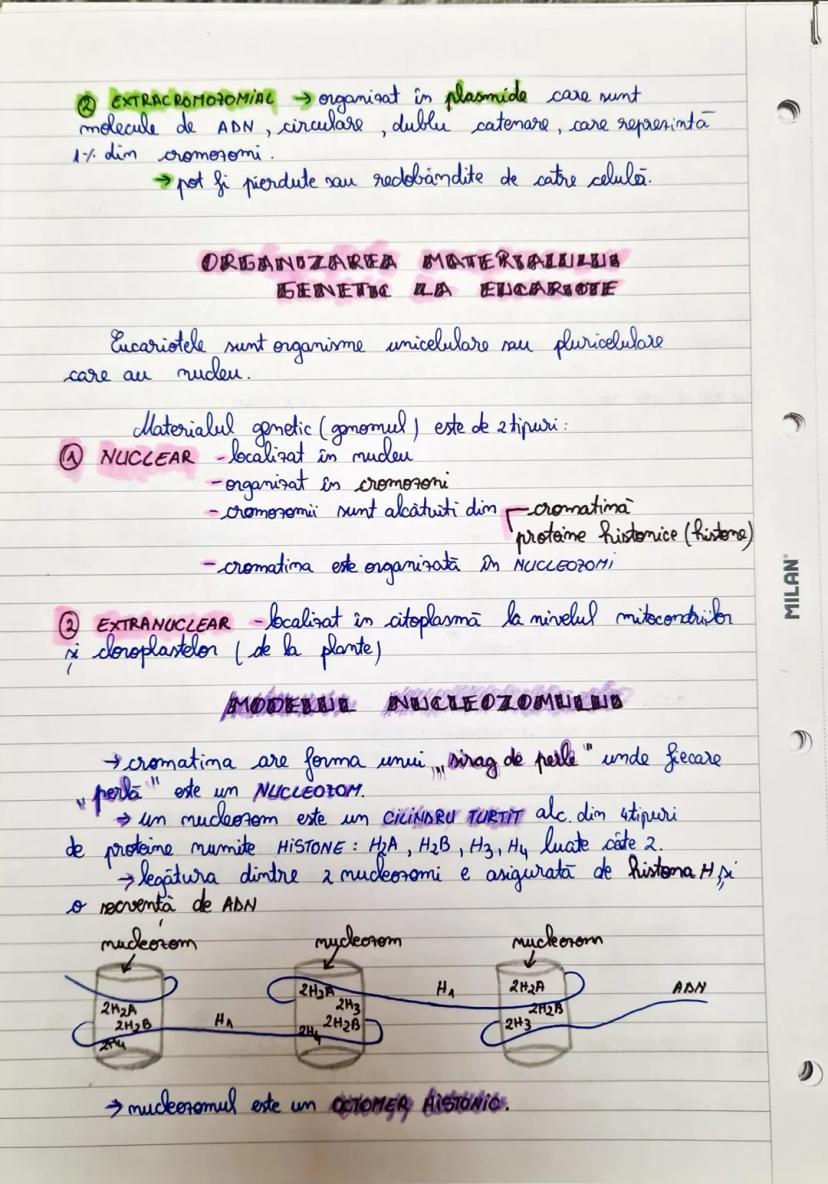 ② EXTRACROMOZOMIAL → organizat în plasmide care sunt
molecule de ADN, circulare, dublu catenare, care reprezintă
1% din cromozomi.
→ pot fi pierdute sau redobândite de catre celulă.
ORGANIZAREA MATERIALULUI
GENETIC LA EUCARIOTE
Eucariotele sunt organisme unicelulare sau pluricelulare
care au nucleu.
Materialul genetic (genomul) este de 2 tipuri:
① NUCLEAR - localizat în nucleu
- organizat în cromozoni
- cromozomii sunt alcătuiti din - cromatină
proteine histonice (histone)
- cromatina este organizată în NUCLEOZOMI
② EXTRANUCLEAR - localizat în citoplasmă la nivelul mitocondriilor
și cloroplastelor (de la plante)
MODELUL NUCLEOZOMULUI
→ cromatina are forma unui „șirag de perle" unde fiecare
"perlă" este un NUCLEOZOM.
→ un nucleozom este un CILINDRU TURTIT alc. din 4 tipuri
de proteine numite HISTONE: H2A, H2B, H3, H4 luate câte 2.
→ legătura dintre 2 nucleozomi e asigurată de histona H1 și
o secvență de ADN
nucleozom nucleozom nucleozom
2H2A 2H2B 2H4 H1 2H2A 2H3 2H2B 2H4 H1 2H2A 2H2B 2H3 ADN
→ nucleozomul este un OCTOMER HISTONIC.
MILAN